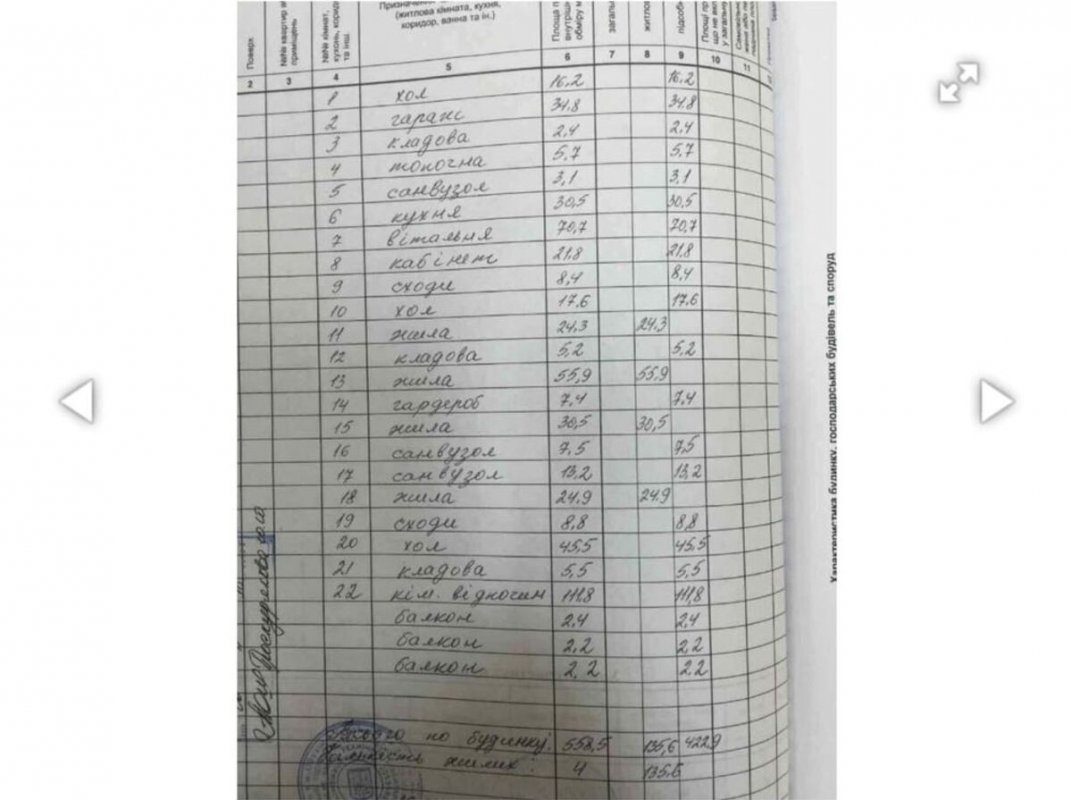 Призначення
(житлова кімната, кухня,
коридор, ванна та ін.)
Поверх
№№ квартир
приміщень
№№ кімнат,
кухонь, корид
та інш.
Площа п
внутріш
обміру
загаль
житлов
підсобн
Площі пр
що не вкл
у загальну
2 3 4 5 6 7 8 9 10 11
1 хол 16,2 16,2
2 гараж 34,8 34,8
3 кладова 2,4 2,4
4 топочна 5,7 5,7
5 санвузол 3,1 3,1
6 кухня 30,5 30,5
7 вітальня 70,7 70,7
8 кабінет 21,8 21,8
9 сходи 8,4 8,4
10 хол 17,6 17,6
11 жила 24,3 24,3
12 кладова 5,2 5,2
13 жила 55,9 55,9
14 гардероб 7,4 7,4
15 жила 30,5 30,5
16 санвузол 7,5 7,5
17 санвузол 13,2 13,2
18 жила 24,9 24,9
19 сходи 8,8 8,8
20 хол 45,5 45,5
21 кладова 5,5 5,5
22 кім. відпочин 111,8 111,8
балкон 2,4 2,4
балкон 2,2 2,2
балкон 2,2 2,2
Всього по будинку: 558,5 135,6 422,9
Кількість жилих: 4 135,6
Характеристика будинку, господарських будівель та споруд